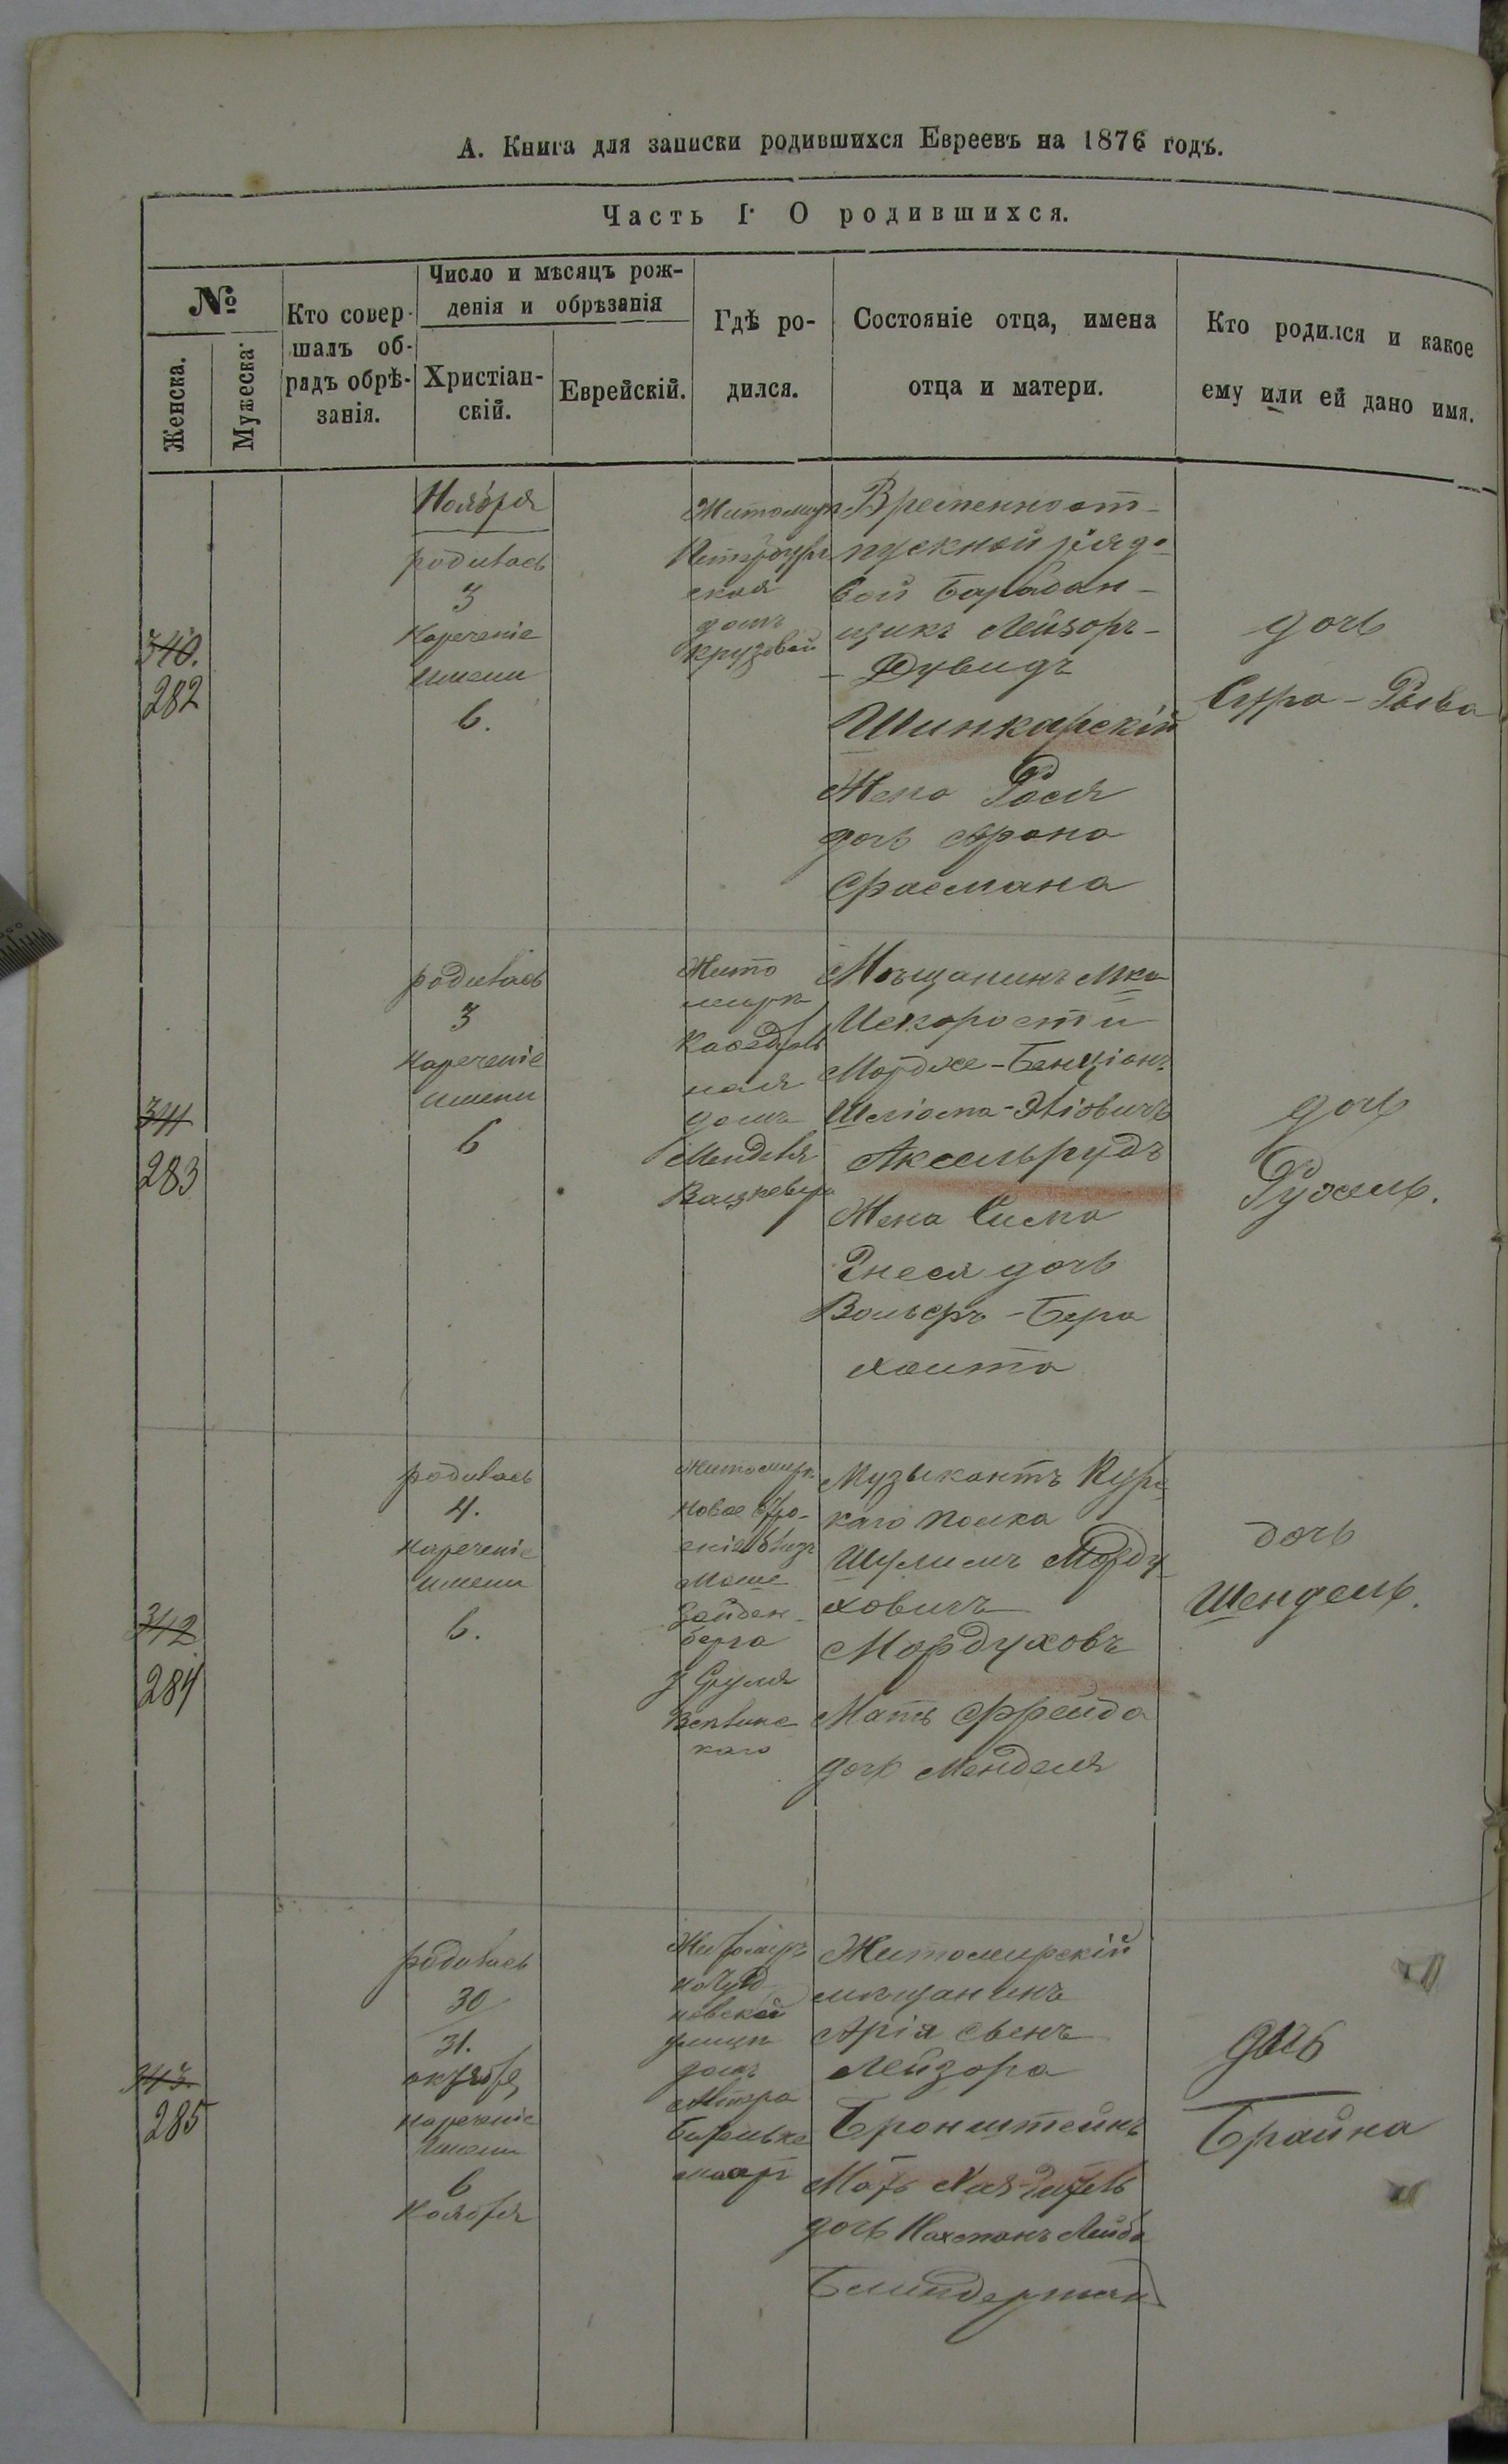 А. Книга для записки родившихся Евреевъ на 1876 годъ.
Часть I. О родившихся.
№
Женска.
Мужеска.
Кто совер-
шалъ об-
рядъ обрѣ-
занія.
Число и мѣсяцъ рож-
денія и обрѣзанія
Христіан-
скій.
Еврейскій.
Гдѣ ро-
дился.
Состояніе отца, имена
отца и матери.
Кто родился и какое
ему или ей дано имя.
340.
282
Ноября
родилась
3
Наречение
имени
6.
Житомиръ
ская
домъ
Временно от-
пускной рядо
вой Барабан-
щикъ Лейзоръ-
- Дувидъ
Шинкарскій
Жена Рося
дочь Арона
дочь
Сура-Рыва
341
283
родилась
3
Наречение
имени
6
Жито
миръ
Кафедраль
ная
домъ
Менделя
Мѣщанинъ Мка
Искорости
Мордхе-Бенціонъ
Аксельрудъ
Жена
дочь
Вольфъ-Бера
дочь
Рухель.
342
284
родилась
4.
Наречение
имени
6.
Житомиръ
Новое Стро-
Моше
Зайден-
берга
Музыкантъ Курс
каго полка
Шулимъ Морду
ховичъ
Мордуховъ
Мать Фрейда
дочь Менделя
дочь
Шендель.
343.
285
родилась
30
31.
октября
наречение
имени
6
Ноября
Житомиръ
на Чуд
новской
улицѣ
домъ
Житомирскій
мѣщанинъ
Арія
Лейзора
Бронштейнъ
Мать Хая
дочь Нахманъ Лейба
дочь
Брайна